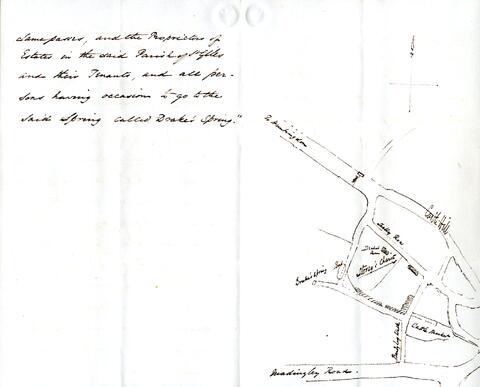 same passes, and the Proprietors of
Estates in the said Parish of St Giles
and their Tenants, and all per-
sons having occasion to go to the
said Spring called Drake's Spring."
To Huntingdon
Castle Hill
Storey's Charity
Drake's Spring
Madingley Road.